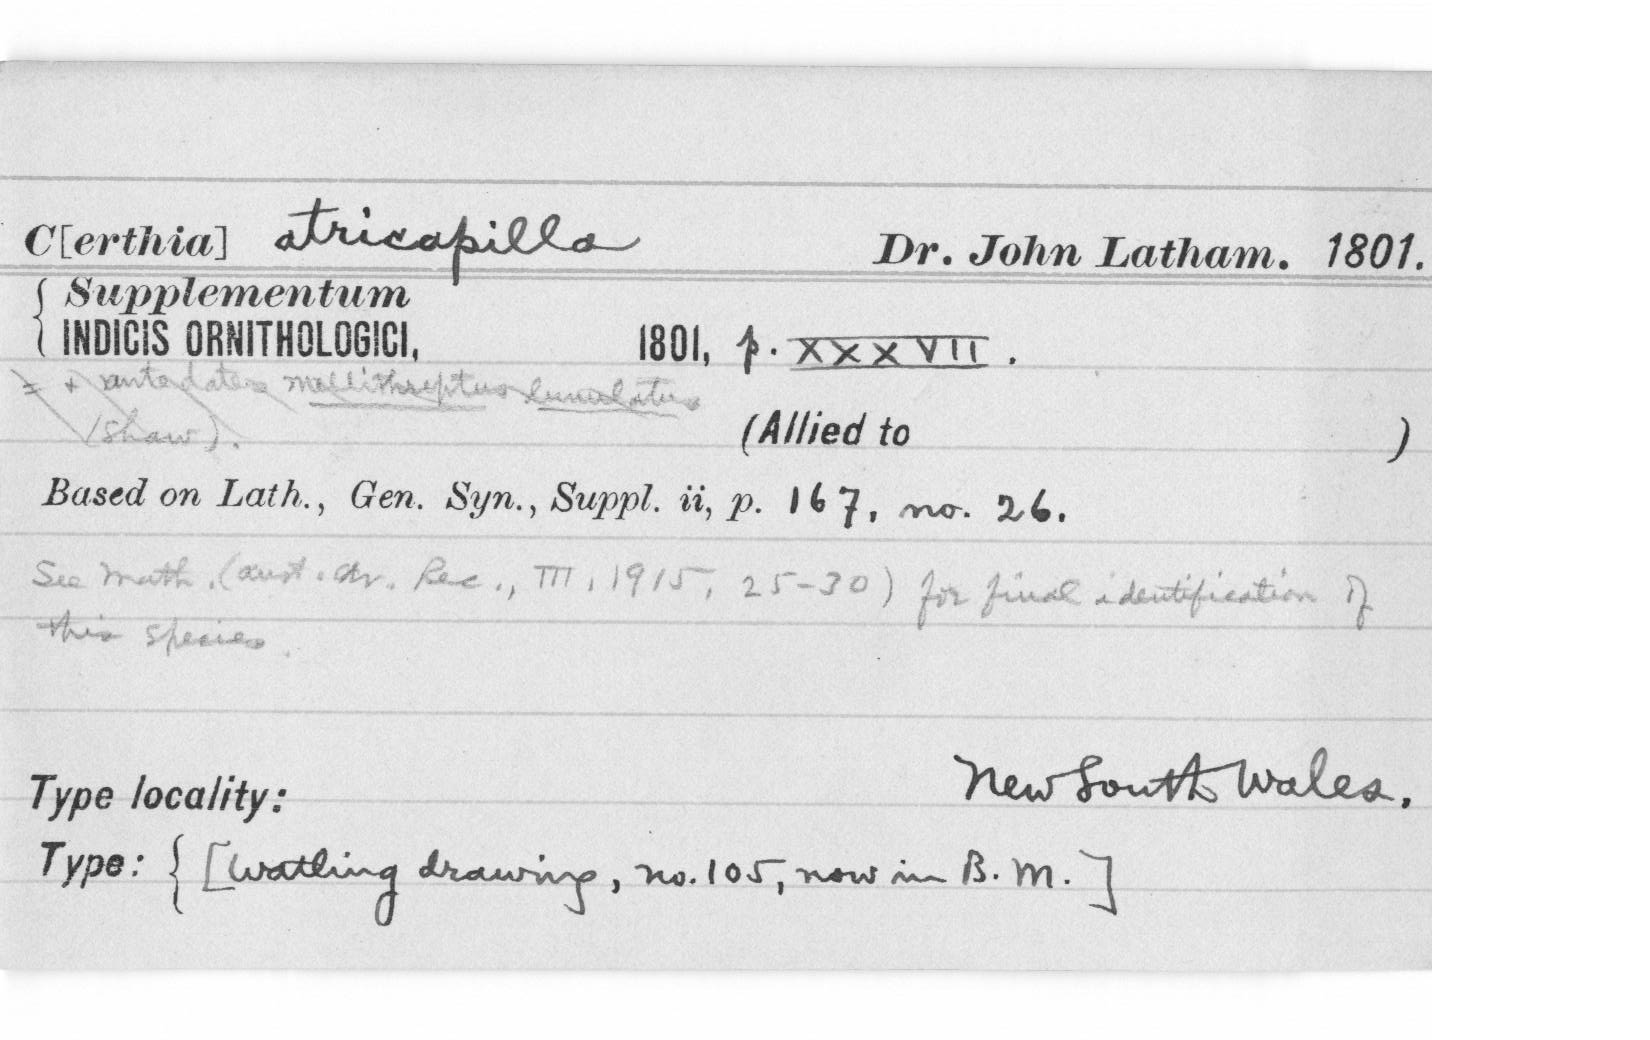 C[erthia] atricapilla Dr. John Latham. 1801.
{ Supplementum
INDICIS ORNITHOLOGICI, 1801, p. XXXVII.
= + antedates mellithreptus lunulatus
(Shaw).
(Allied to )
Based on Lath., Gen. Syn., Suppl. ii, p. 167, no. 26.
See Math. (Aust. Av. Rec., III, 1915, 25-30) for final identification of
this species.
Type locality: New South Wales.
Type: { [Watling drawing, no. 105, now in B. M.]